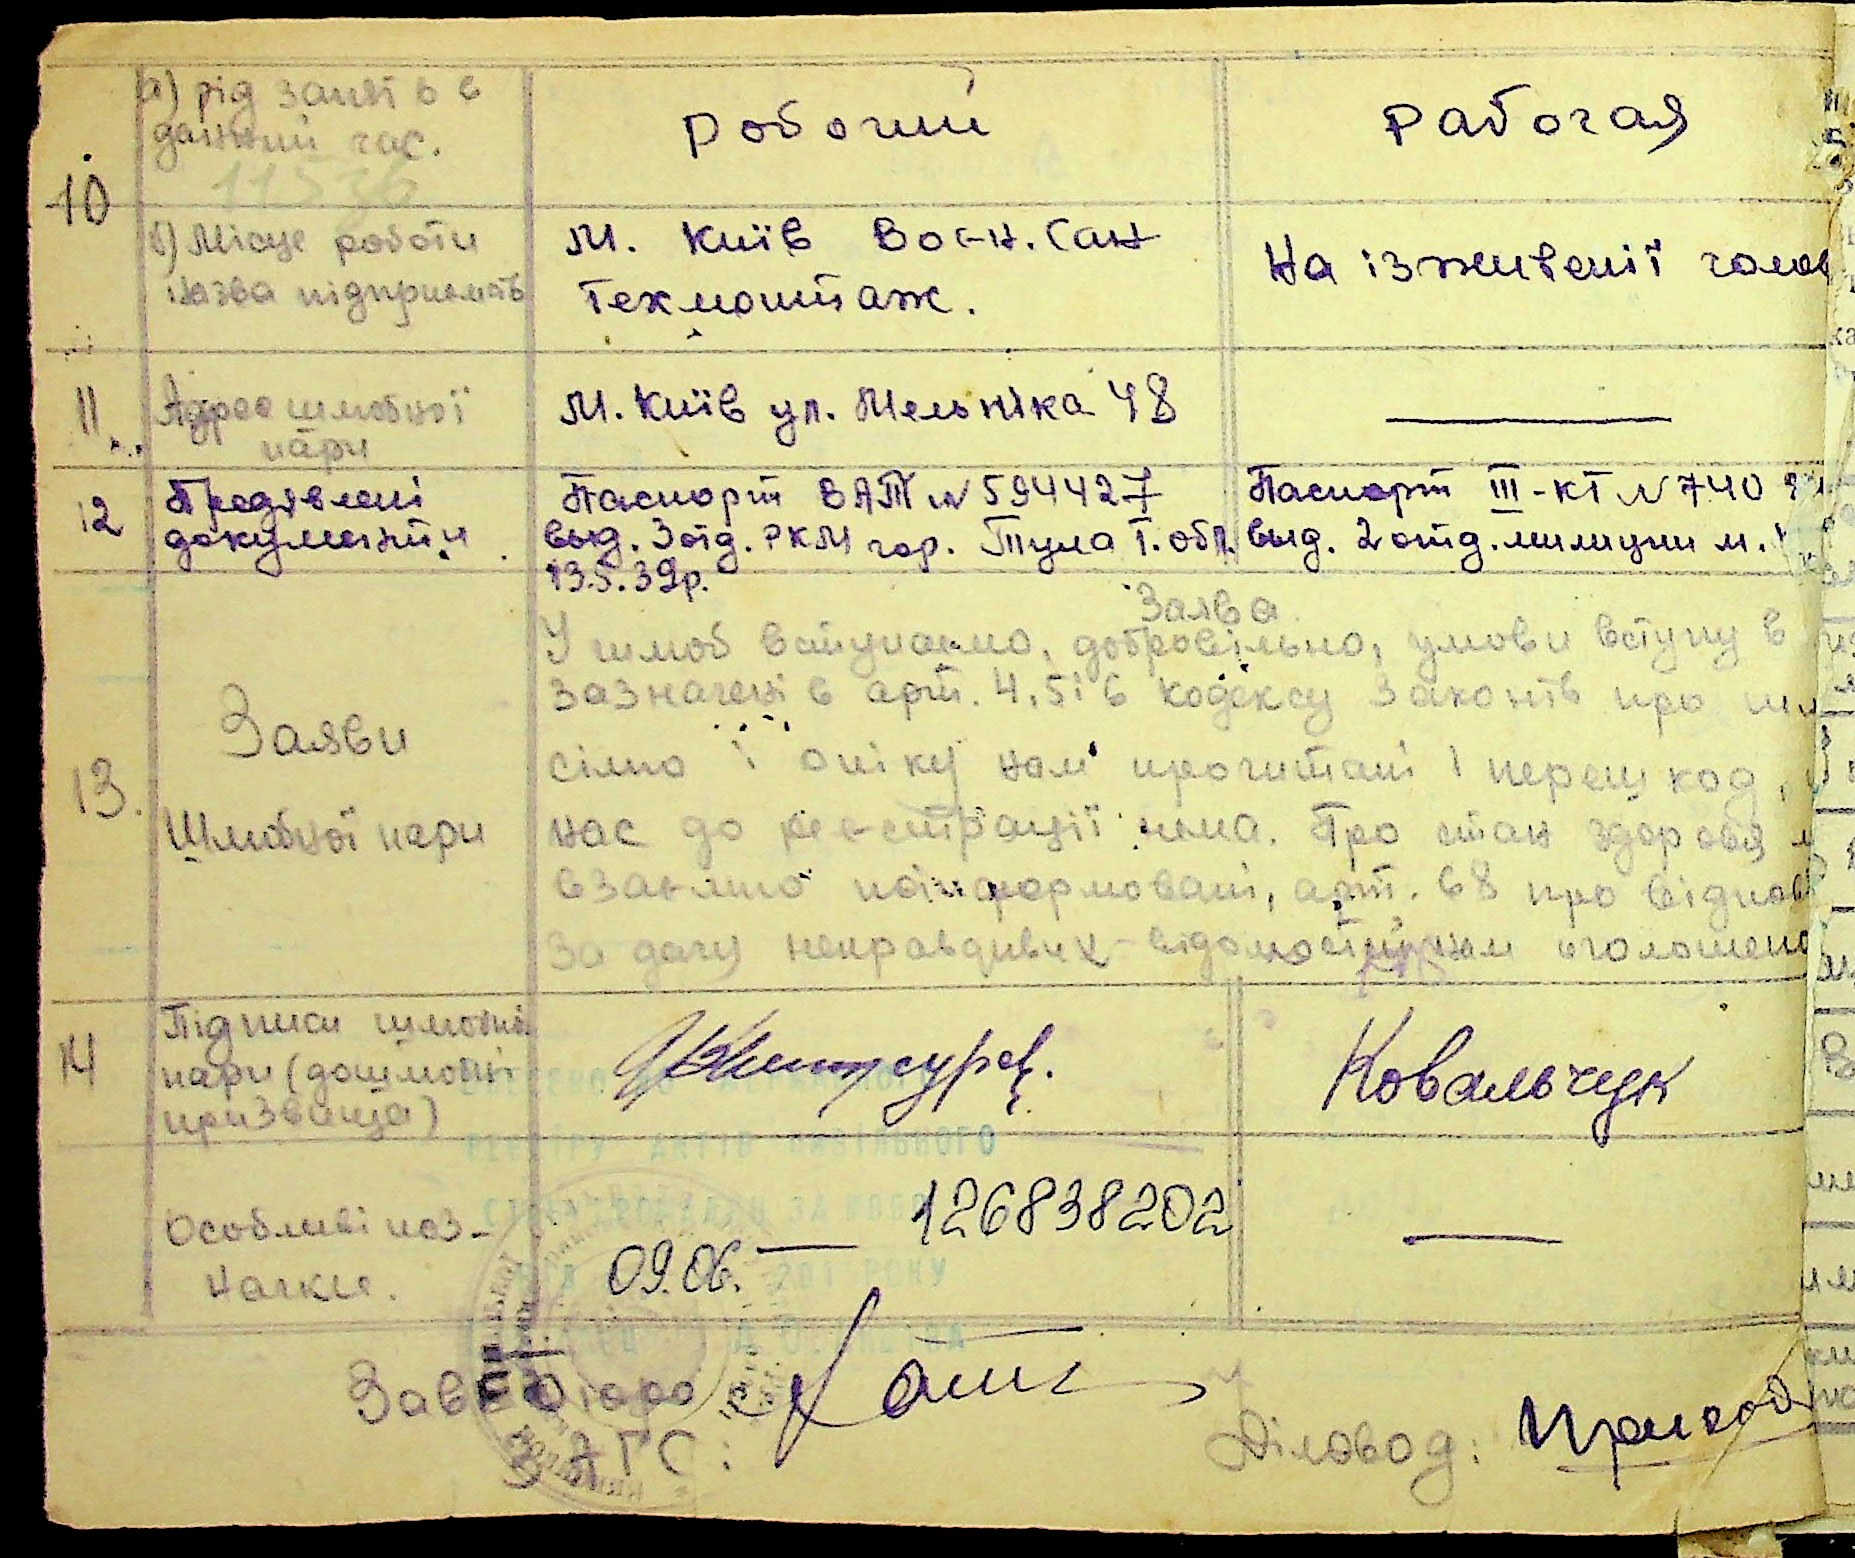 10
а) рід заняť в
данний час.
11536
робочий
рабочая
б) Місце роботи
назва підприємств
М. Київ Воєн. Сан
Техмонтаж.
На ізживенії
11
Адрес шлюбної
пари
М. Київ ул. Мельніка 48
12
Предявлені
документи
Паспорт ВАТ № 594427
выд. 3 отд. РКМ гор. Тула Т. обл
13.5.39р.
Паспорт III-КТ № 740
выд. 2 отд. милиции м.
13.
Заяви
Шлюбної пари
Заява
У шлюб вступаємо, добровільно, умови вступу в
зазначені в арт. 4, 5 і 6 кодексу Законів про
сімю і опіку нам прочитані і перешкод,
нас до реєстрації нема. Про стан здоровя
взаємно поінформовані, арт. 68 про
За дачу неправдивих відомостій нам оголошено
14
Підписи шлюбної
пари (дошлюбні
призвища)
Ковальчук
Особливі поз-
начки.
09.06. — 126838202
Зав Бюро
ЗАГС:
Діловод: